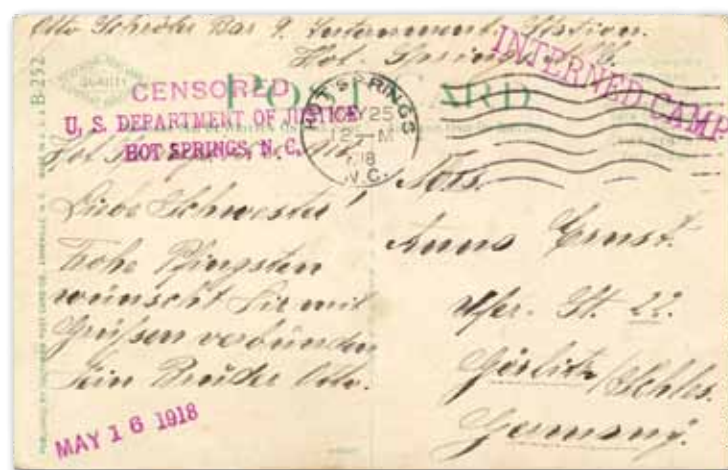 Otto Schröter Bar 9. Internment Station.
Hot Springs N.C.
INTERNED CAMP
B-252
QUALITY
POST CARD
CENSORED
U. S. DEPARTMENT OF JUSTICE
HOT SPRINGS, N. C.
HOT SPRINGS
MAY 25
12 – M
1918
N.C.
Hot Springs
Liebe Schwester!
Frohe Pfingsten
wünscht Dir mit
Grüßen verbunden
Dein Bruder Otto.
MAY 16 1918
Mrs.
Anna Ernst.
Ufer. St. 22.
Görlitz/Schles.
Germany.